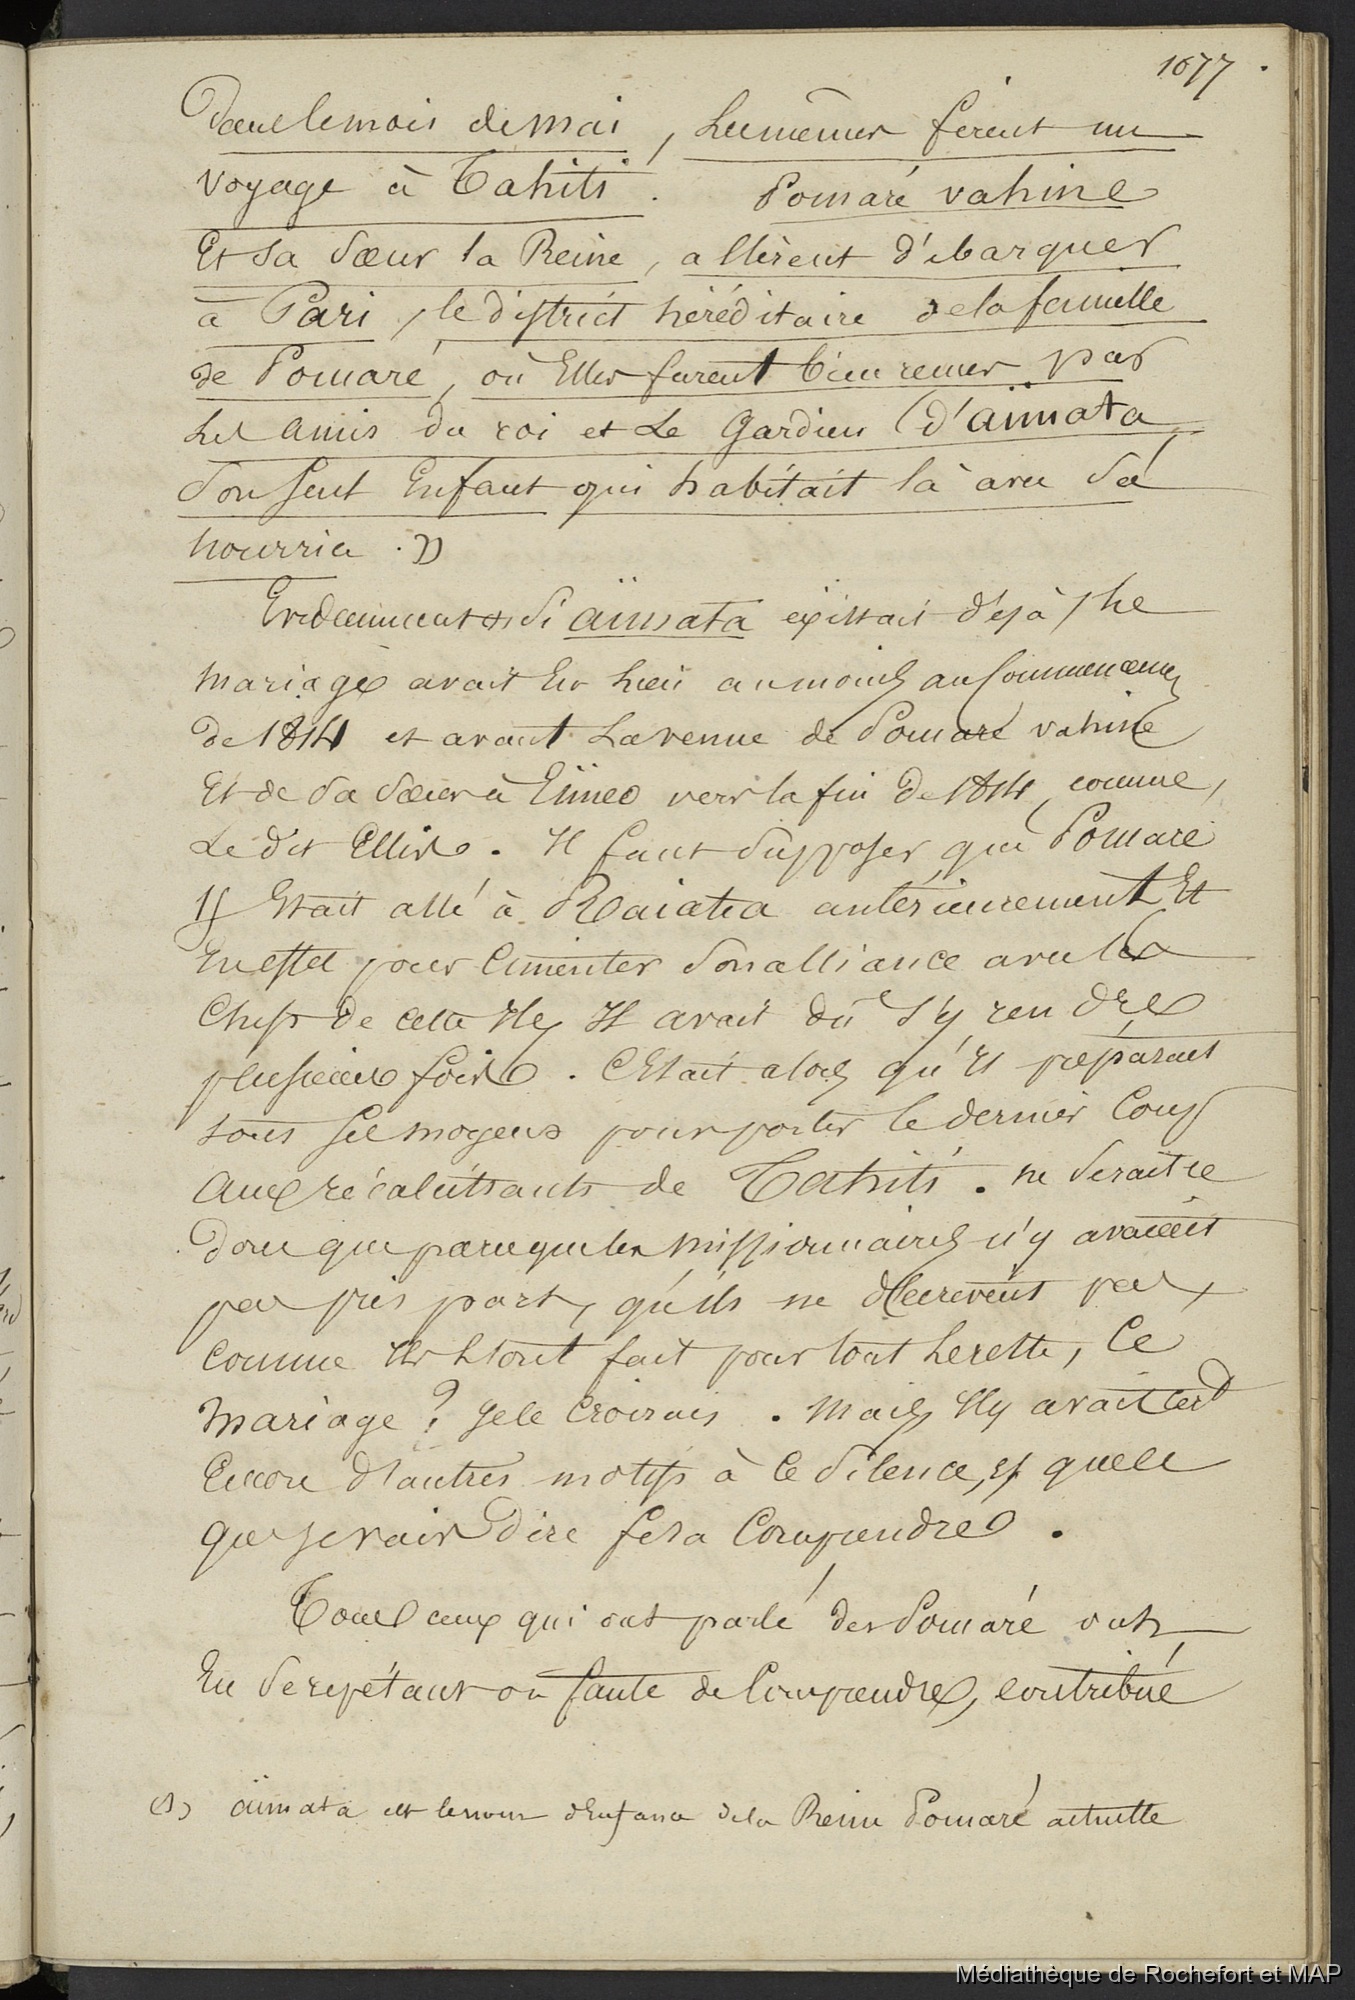 1677.
Dans le mois de mai, les mêmes firent un
voyage à Tahiti. Pomaré vahine
Et sa sœur la Reine, allèrent d'ébarquer
à Pari, le district héréditaire de la famille
de Pomaré, où Elles furent bien reçues par
Les amis du roi et Le Gardien (d'aïmata,
son seul Enfant qui habitait là avec sa
nourrice. »
Evidemment si aïmata existait déjà, le
mariage avait eu lieu au moins au Commencement
de 1814 et avant La venue de Pomaré vahine
Et de sa sœur à Eïmeo vers la fin de 1814, comme,
Le dit Ellis. Il faut supposer que Pomaré
Etait allé à Raiatea antérieurement Et
En effet pour Cimenter son alliance avec les
Chefs de cette Ile, Il avait dû s'y rendre
plusieurs fois. C'Etait alors qu'Il préparait
tous ses moyens pour porter le dernier Coup
aux récalcitrants de Tahiti. ne serait ce
donc que parce que les missionnaires n'y avaient
pas pris part, qu'ils ne décrivent pas,
comme Ils l'ont fait pour tout le reste, Ce
mariage? je le croirais. mais Il y avait
Encore d'autres motifs à Ce silence, et que ce
que je vais dire fera Comprendre.
Tous ceux qui ont parlé des Pomaré ont,
En se répétant ou faute de Comprendre, contribué
(1) aïmata est le nom d'Enfance de la Reine Pomaré actuelle
Médiathèque de Rochefort et MAP